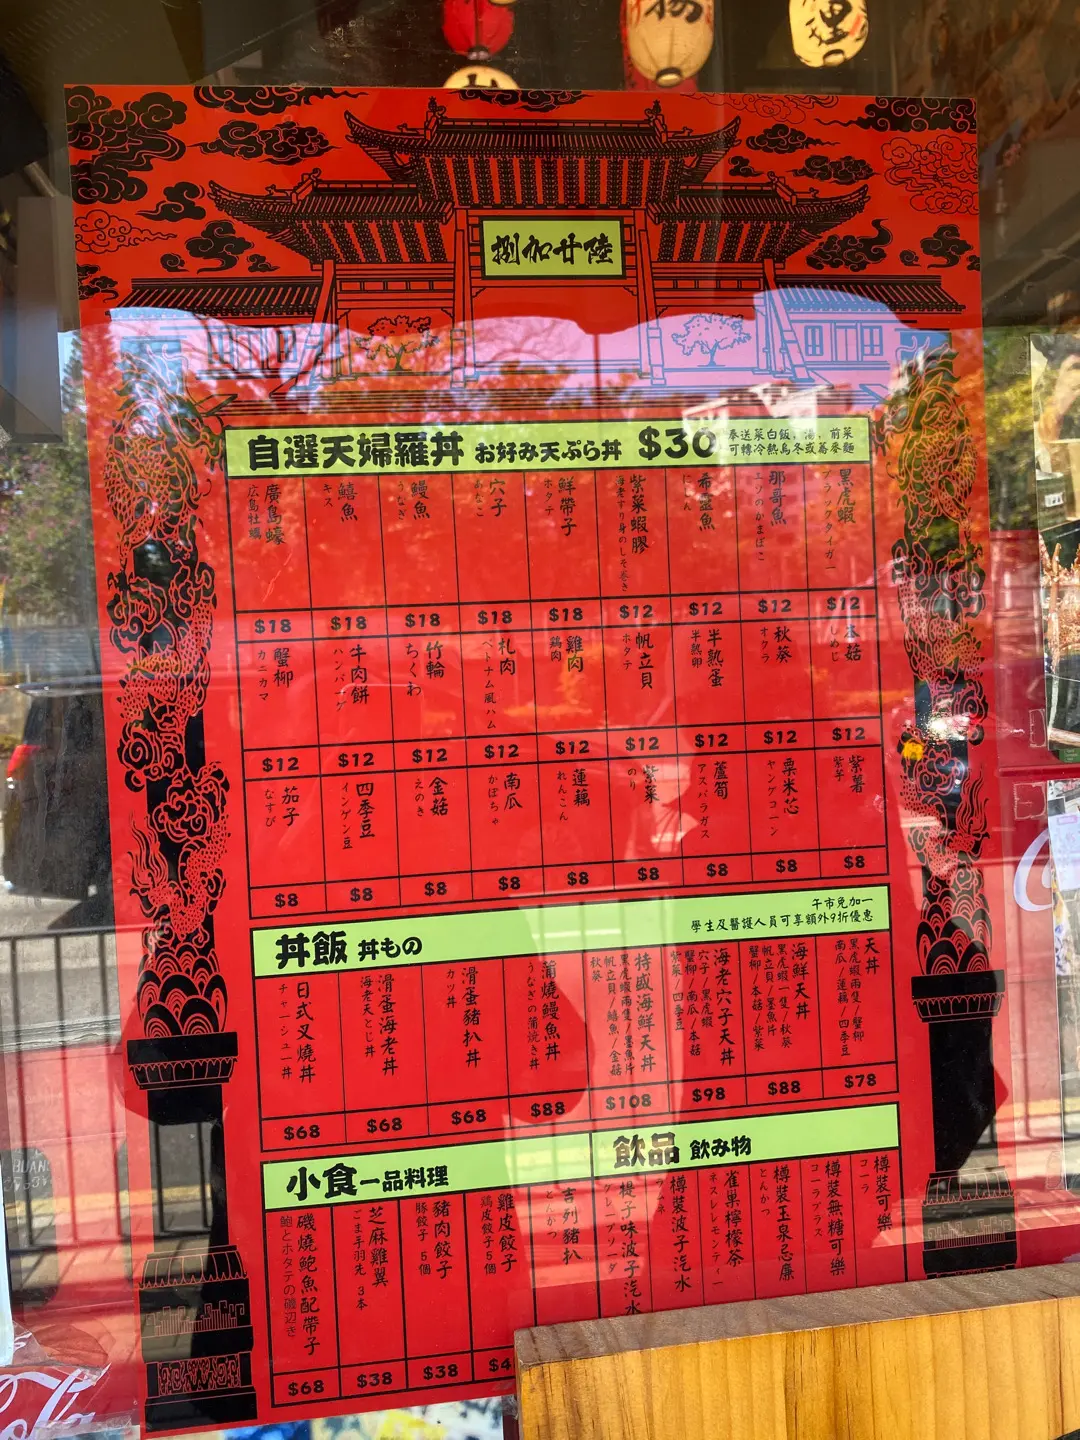 捌加廿陸
自選天婦羅丼 お好み天ぷら丼 $30
奉送菜白飯,湯,前菜
可轉冷熱烏冬或蕎麥麵
黑虎蝦
ブラックタイガー
$12
那哥魚
エソのかまぼこ
$12
希靈魚
にしん
$12
紫菜蝦膠
海老すり身のしそ巻き
$12
鮮帶子
ホタテ
$18
穴子
あなご
$18
鰻魚
うなぎ
$18
鱚魚
キス
$18
廣島蠔
広島牡蠣
$18
本菇
しめじ
$12
秋葵
オクラ
$12
半熟蛋
半熟卵
$12
帆立貝
ホタテ
$12
雞肉
鶏肉
$12
札肉
ベトナム風ハム
$12
竹輪
ちくわ
$12
牛肉餅
ハンバーグ
$12
蟹柳
カニカマ
$12
紫薯
紫芋
$8
粟米芯
ヤングコーン
$8
蘆筍
アスパラガス
$8
紫菜
のり
$8
蓮藕
れんこん
$8
南瓜
かぼちゃ
$8
金菇
えのき
$8
四季豆
インゲン豆
$8
茄子
なすび
$8
丼飯 丼もの
午市免加一
學生及醫護人員可享額外9折優惠
天丼
黑虎蝦兩隻/蟹柳
南瓜/蓮藕/四季豆
$78
海鮮天丼
黑虎蝦一隻/秋葵
帆立貝/墨魚片
蟹柳/本菇/紫菜
$88
海老穴子天丼
穴子/黑虎蝦
蟹柳/南瓜/本菇
紫菜/四季豆
$98
特盛海鮮天丼
黑虎蝦兩隻/墨魚片
帆立貝/鱚魚/金菇
秋葵
$108
蒲燒鰻魚丼
うなぎの蒲焼き丼
$88
滑蛋豬扒丼
カツ丼
$68
滑蛋海老丼
海老天とじ丼
$68
日式叉燒丼
チャーシュー丼
$68
小食 一品料理
吉列豬扒
とんかつ
雞皮餃子
鶏皮餃子5個
$4
豬肉餃子
豚餃子 5個
$38
芝麻雞翼
ごま手羽先 3本
$38
磯燒鮑魚配帶子
鮑とホタテの磯辺き
$68
飲品 飲み物
樽裝可樂
コーラ
樽裝無糖可樂
コーラプラス
樽裝玉泉忌廉
とんかつ
雀巢檸檬茶
ネスレレモンティー
樽裝波子汽水
ラムネ
提子味波子汽水
グレープソーダ